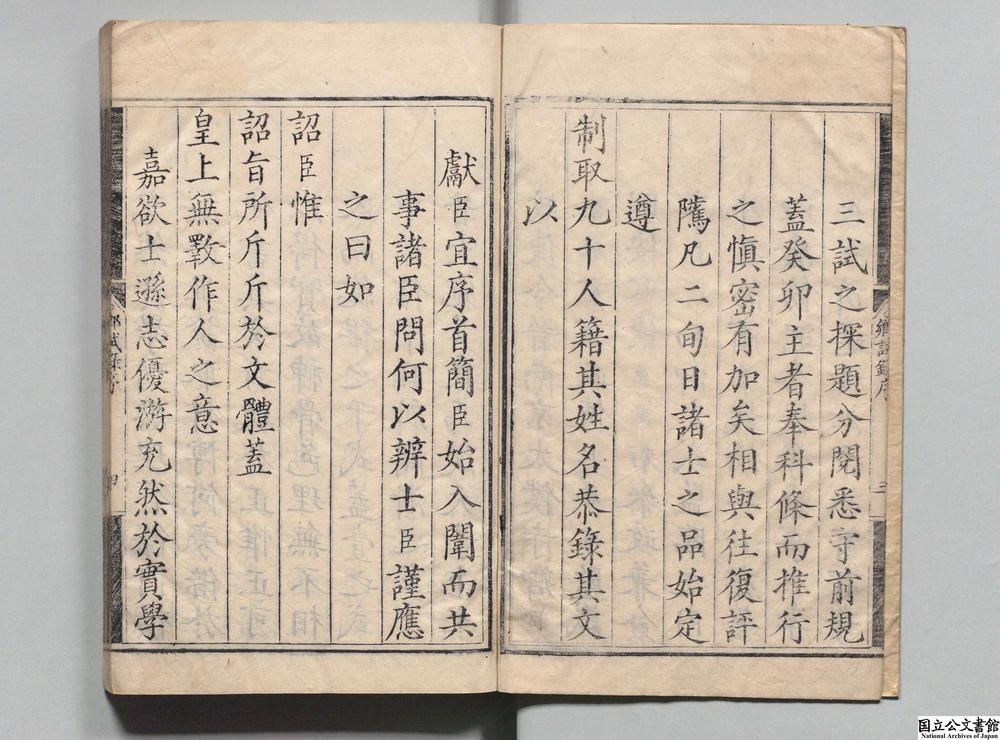 三試之探題分閱悉守前規
蓋癸卯主者奉科條而推行
之愼密有加矣相與往復評
隲凡二旬日諸士之品始定
遵
制取九十人籍其姓名恭錄其文
以
鄉試錄序
三
獻臣宜序首簡臣始入闈而共
事諸臣問何以辨士臣謹應
之曰如
詔臣惟
詔旨所斤斤於文體蓋
皇上無斁作人之意
嘉欲士遜志優游充然於實學
鄉試錄序
四
国立公文書館
National Archives of Japan